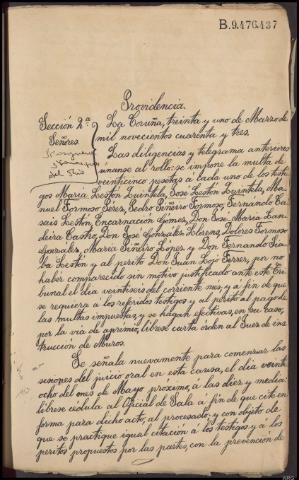 B.9.476.437
Providencia.
Sección 2ª La Coruña, treinta y uno de Marzo de
Señores mil novecientos cuarenta y tres.
Las diligencias y telegrama anteriores
del Rio únanse al rollo: se impone la multa de
veinticinco pesetas á cada uno de los testi-
gos María Lestón Quintela, José Lestón Quintela, Ma-
nuel Formoso Pérez, Pedro Piñeiro Formoso, Fernando Ca-
sais Lestón, Encarnación Gomez, Don José María Lan-
deira Castro, Don José González Llorens, Dolores Formoso
González, María Piñeiro Lopez y Don Fernando Sil-
va Lestón y al perito Don Julio Ferrer, por no
haber comparecido sin motivo justificado ante este Tri-
bunal el día veintiseis del corriente mes, y á fin de que
se requiera á los referidos testigos y al perito al pago de
las multas impuestas, y se hagan efectivas, en su caso,
por la vía de apremio, líbrese carta orden al Juez de ins-
trucción de Muros.
Se señala nuevamente para comenzar las
sesiones del juicio oral en esta causa, el día veinte
ocho del mes de Mayo próximo, á las diez y media:
líbrese cédula al Oficial de Sala á fin de que cite en
forma para dicho acto, al procesado, y con objeto de
que se practique igual citación á los testigos y á los
peritos propuestos por las partes, con la prevención de